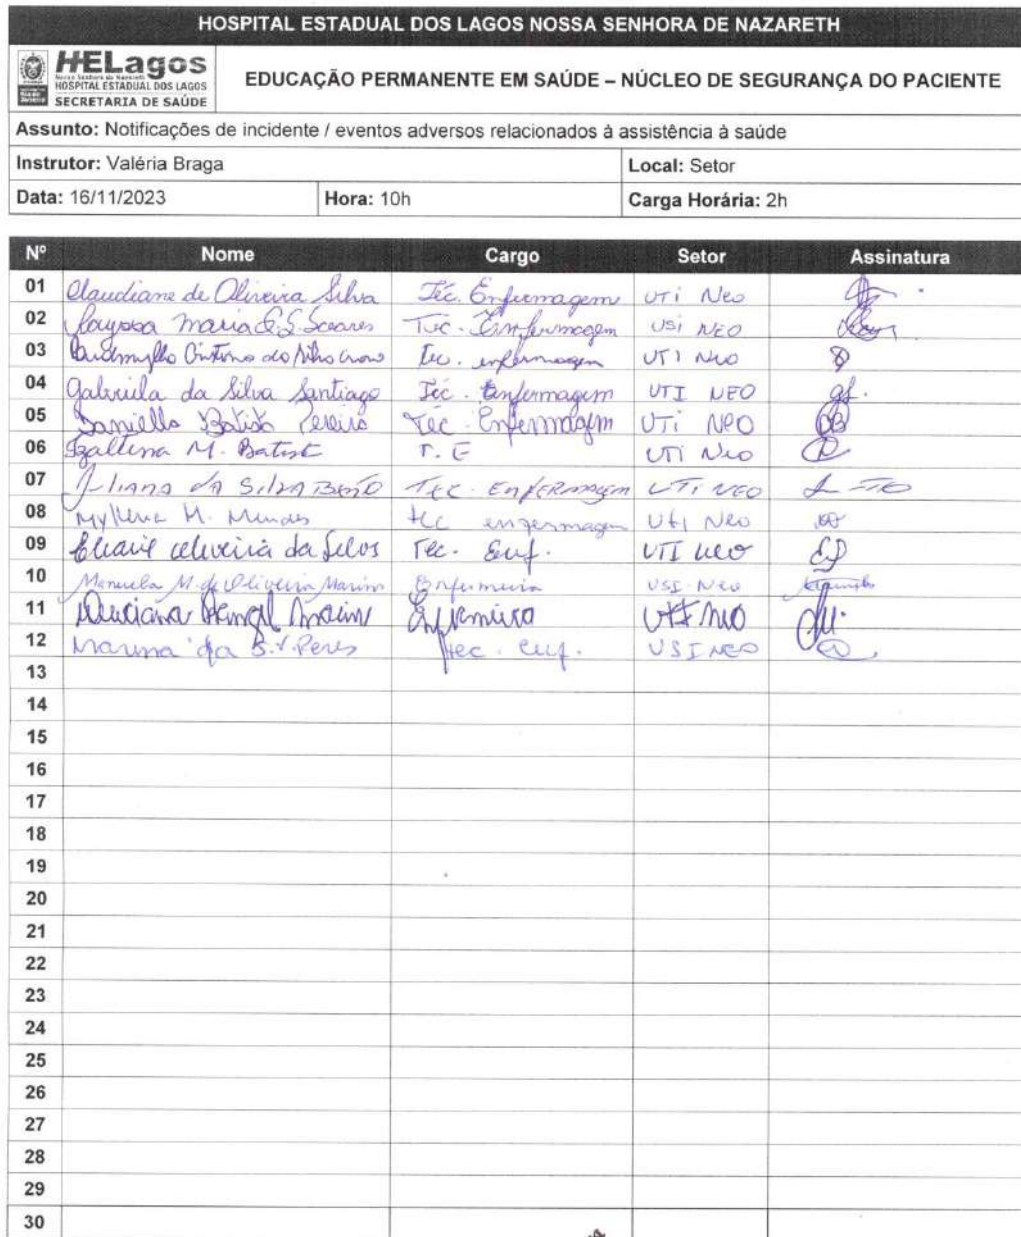 HOSPITAL ESTADUAL DOS LAGOS NOSSA SENHORA DE NAZARETH
HELagos
Nossa Senhora de Nazareth
HOSPITAL ESTADUAL DOS LAGOS
SECRETARIA DE SAÚDE
EDUCAÇÃO PERMANENTE EM SAÚDE – NÚCLEO DE SEGURANÇA DO PACIENTE
Assunto: Notificações de incidente / eventos adversos relacionados à assistência à saúde
Instrutor: Valéria Braga Local: Setor
Data: 16/11/2023 Hora: 10h Carga Horária: 2h
Nº Nome Cargo Setor Assinatura
01 Claudiane de Oliveira Silva Téc. Enfermagem UTi Neo
02 Rayssa Maria Soares Tec. Enfermagem USi NEO
03 Tec. enfermagem UTI Neo
04 Gabriela da Silva Santiago Téc. Enfermagem UTI NEO
05 Daniella Batista Pereira Tec. Enfermagem UTi NEO
06 Izaltina M. Batist T. E UTI Neo
07 Juliana DA SilvA TEC. ENfERmAgEM UTi NEO
08 Myllena M. Mendes tec enfermagem Uti Neo
09 Oliveira da Tec. Enf. UTI neo
10 Manuela M. de Oliveira Marins Enfermeira USI-Neo
11 Luciana Rangel Enfermeira NEO
12 Marina da S. V. Peres tec. enf. USI NEO
13
14
15
16
17
18
19
20
21
22
23
24
25
26
27
28
29
30